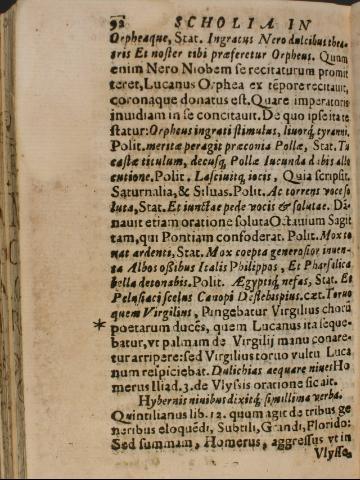 92 SCHOLIA IN
Orpheaque, Stat. Ingratus Nero dulcibus thea-
tris Et noster tibi præferetur Orpheus. Quum
enim Nero Niobem se recitaturum promit
teret, Lucanus Orphea ex tēpore recitauit,
coronaque donatus est. Quare imperatoris
inuidiam in se concitauit. De quo ipse ita te
statur: Orpheus ingrati stimulus, liuorq; tyranni.
Polit. meritæ peragit præconia Pollæ, Stat. Tu
castæ titulum, decusq; Pollæ Iucunda dabis allo
cutione. Polit. Lasciuitq; iocis, Quia scripsit
Saturnalia, & Siluas. Polit. Ac torrens voce so
luta, Stat. Et iunctæ pede vocis & solutæ. Dā-
nauit etiam oratione soluta Octauium Sagit
tam, qui Pontiam confoderat. Polit. Mox to
nat ardenti, Stat. Mox coepta generosior iuuen-
ta Albos ossibus Italis Philippos, Et Pharsalica
bella detonabis. Polit. Ægyptiq; nefas, Stat. Et
Pelusiaci scelus Canopi Deflebis pius. cæt. Toruo
quem Virgilius, Pingebatur Virgilius chori
* poetarum duces, quem Lucanus ita seque-
batur, vt palmam de Virgilij manu conare-
tur arripere: sed Virgilius toruo vultu Luca
num respiciebat. Dulichias aequare niues Ho
merus Iliad. 3. de Vlyssis oratione sic ait.
Hybernis niuibus dixitq; simillima verba.
Quintilianus lib. 12. quum agit de tribus ge
neribus eloquēdi, Subtili, Grandi, Florido:
Sed summam, Homerus, aggressus vt in
Vlysse,